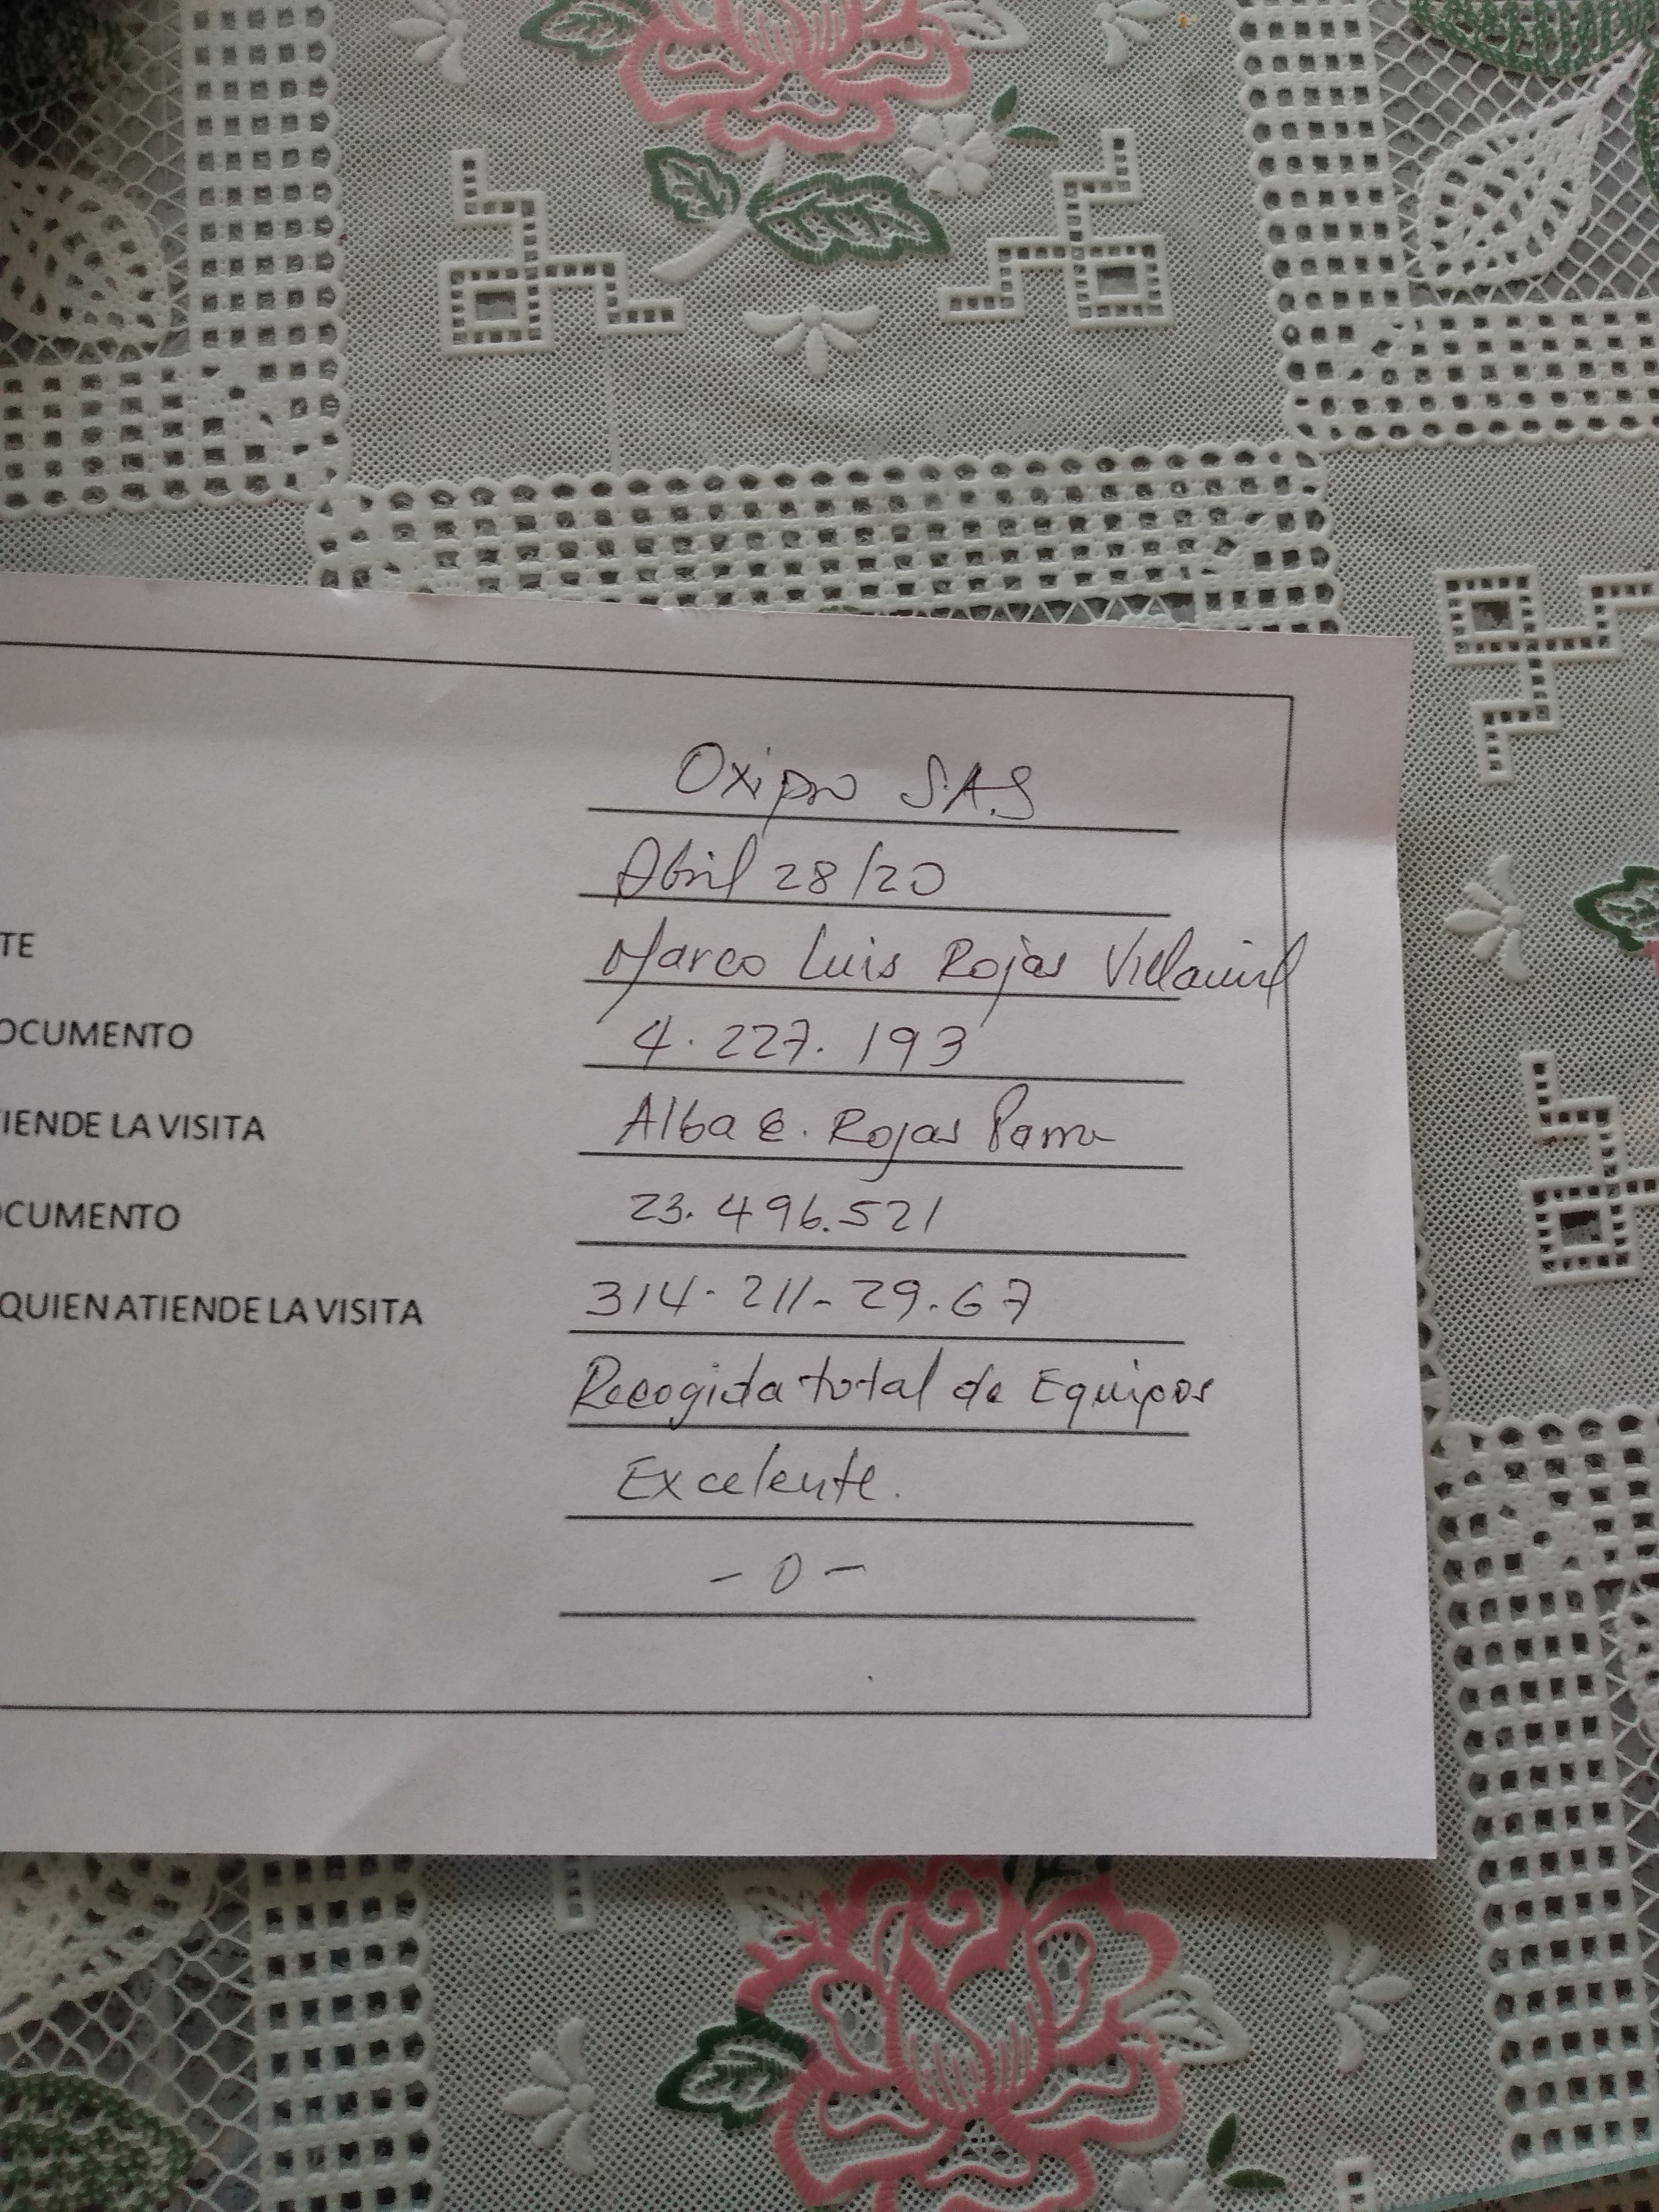 Oxipro S.A.S
Abril 28/20
TE Marco Luis Rojas Villamil
OCUMENTO 4.227.193
TIENDE LA VISITA Alba E. Rojas Parra
OCUMENTO 23.496.521
QUIEN ATIENDE LA VISITA 314-211-29.67
Recogida total de Equipos
Excelente.
- 0 -